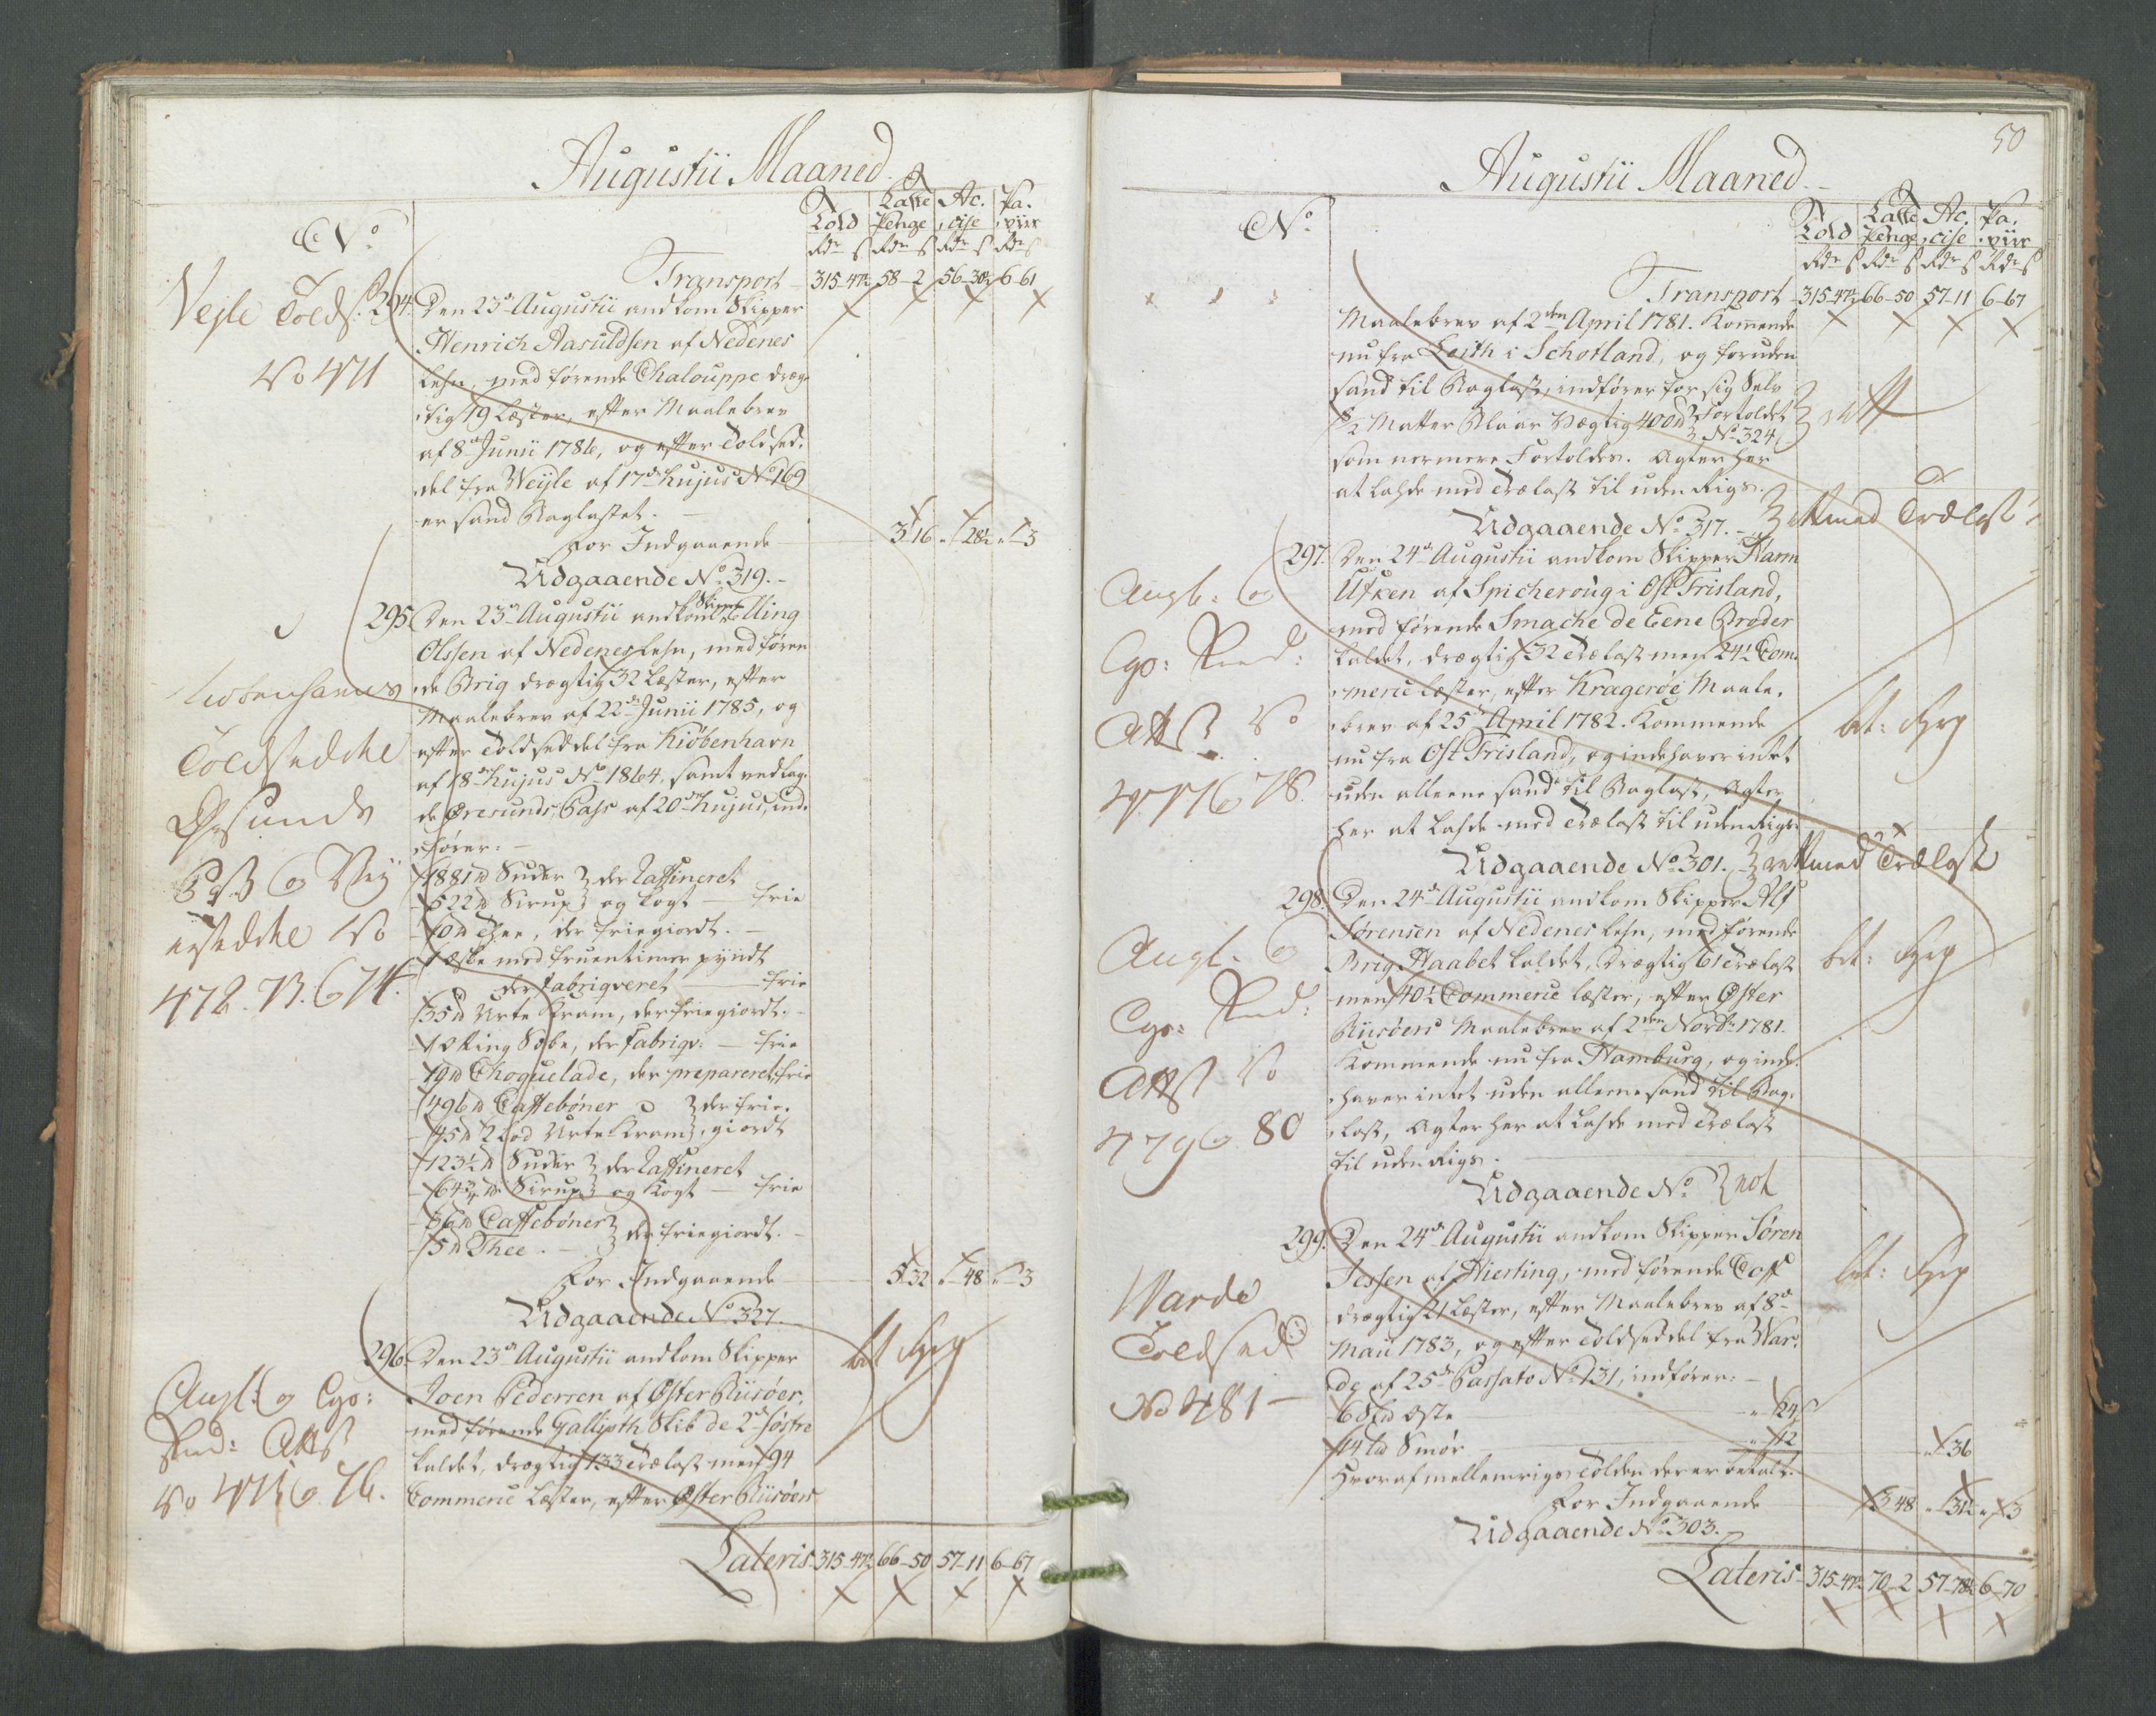 Augustii Maaned.
No
Told
Rdr s
Laste
Penge
Rdr s
Ac.
cise
Rdr s
Pa.
piir
Rdr s
Transport 315-47½ 58-2 56-30½ 6-61
Vejle Tolds:
No 471
294. Den 23de Augustii ankom Skipper
Henrich Aasuldsen af Nedenes
Lehn, med førende Chalouppe dræg-
tig 19 Læster, efter Maalebrev
af 8de Junii 1786, og efter Toldsed-
del fra Weyle af 17de hujus No 169
er sand Baglastet.
For Indgaaende 3-16 " 28½ " 3
Udgaaende No 319.
295. Den 23de Augustii ankom Skipper Elling
Olssen af Nedenes Lehn, med føren-
de Brig drægtig 32 Læster, efter
Maalebrev af 22de Junii 1785, og
efter Toldseddel fra Kiøbenhavn
af 18de hujus No 1864, samt vedlag-
de Øresunds Pass af 20de hujus, ind-
fører:
Kiøbenhavns
Toldseddel
Øresunds
Pass og Vej
erseddel No
472. 73. & 74.
1881 lb Suker } der Raffineret
522 lb Sirup } og kogt — frie
10 lb Thee, der friegiordt.
1 Æske med fruentimer pyndt
der fabriqveret — frie
35 lb Urte Kram, der friegiordt.
1 Otting Sæbe, der fabriqv: — frie
19 lb Choquelade, der prepareret, frie
496 lb Caffebøner } der frie-
45 lb 2 Lod Urte Kram } giordt
123½ lb Suker } der Raffineret
64¾ lb Sirup } og Kogt — frie
36 lb Caffebøner } der friegiordt.
5 lb Thee.
For Indgaaende 5-32 " 48 " 3
Udgaaende No 327.
296. Den 23de Augustii ankom Skipper
Joen Pedersen af Øster Riisøer,
med førende Gallioth Skib de 2de Søstre
kaldet, drægtig 133 Trælast men 94
Commerce Læster, efter Øster Riisøers
Angl: og Cgo:
Rud: Attst
No 475 & 76.
Lateris 315-47½ 66-50 57-11 6-67
50
Augustii Maaned.
No
Told
Rdr s
Laste
Penge
Rdr s
Ac.
cise
Rdr s
Pa.
piir
Rdr s
Transport 315-47½ 66-50 57-11 6-67
Maalebrev af 2den April 1781. Kommende
nu fra Leith i Schotland, og foruden
sand til Baglast, indfører for sig Selv
2 Matter Blaar Vægtig 400 lb } Fortoldet
} No 324
som nermere Fortoldes. Agter her
at ladde med Trælast til uden Rigs.
Udgaaende No 317. } rett med Trælast
297. Den 24de Augustii ankom Skipper Harm
Utken af Spicheroug i Ost Frisland,
med førende Smache de Eene Broder
kaldet, drægtig 32 Trælast men 24½ Com-
merce Læster, efter Kragerøe Maale-
brev af 25de April 1782. Kommende
nu fra Ost Frisland, og indehaver intet
uden alleene sand til Baglast, Agter
her at ladde med Trælast til uden Rigs.
Angl: og
Cgo: Rud:
Attst No
477 & 78.
Udgaaende No 301. } rett med Trælast
298. Den 24de Augustii ankom Skipper Alf
Sørensen af Nedenes Lehn, med førende
Brig Haabet kaldet, drægtig 61 Trælast
men 40½ Commerce Læster, efter Øster
Riisøers Maalebrev af 2den Novbr 1781.
Kommende nu fra Hamburg, og inde-
haver intet uden alleene sand til Bag-
last, Agter her at ladde med Trælast
til uden Rigs.
Angl. &
Cgo: Rud:
Attst No
479 & 80
Udgaaende No
299. Den 24de Augustii ankom Skipper Søren
Jessen af Hierting, med førende Coff
drægtig 21 Læster, efter Maalebrev af 8de
Maii 1783, og efter Toldseddel fra War-
de af 25de Passato No 131, indfører:
6 Lod Oste " 24
14 lb Smør " 12
" 36
Hvoraf mellemrigs Tolden der er betalt.
For Indgaaende 3-48 " 31½ " 3
Udgaaende No 303.
Warde
Toldsed:
No 481
Lateris 315-47½ 70-2 57-78½ 6-70